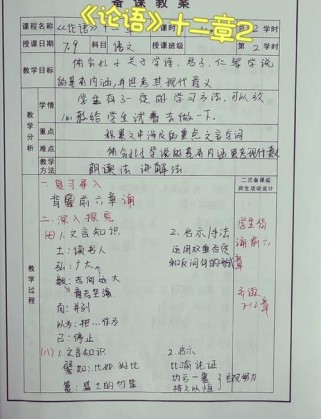 备课教案
《论语》十二章2
课程名称 《论语》十二 第2学时
授课日期 7.9 科目 语文 授课班级 第2学时
教学目标 体会孔子关于学语、君子、仁等学说
的基本内涵,并思考其现代意义
教学分析
学情 学生有了一定的学习方法,可以放
心教给学生试着去做一下。
重点 积累文中涉及的重点文言实词
难点 体会孔子学说的基本内涵思考现代意义
教学方法 朗读法 讲解法
二次备课组
师生活动设计
教学过程
一、复习导入
背前六章 诵
二、深入探究
1.文言知识
士:读书人
弘:广大
毅:志向远大
而:并列
以为:把…作为
已:停止
2.
运用双重否定
和反问句的
学生背
诵前六
章
(八)1.文言知识
譬如:比如 好比
篑:盛土的竹筐
2.
比喻论证
功亏一篑
持之以恒